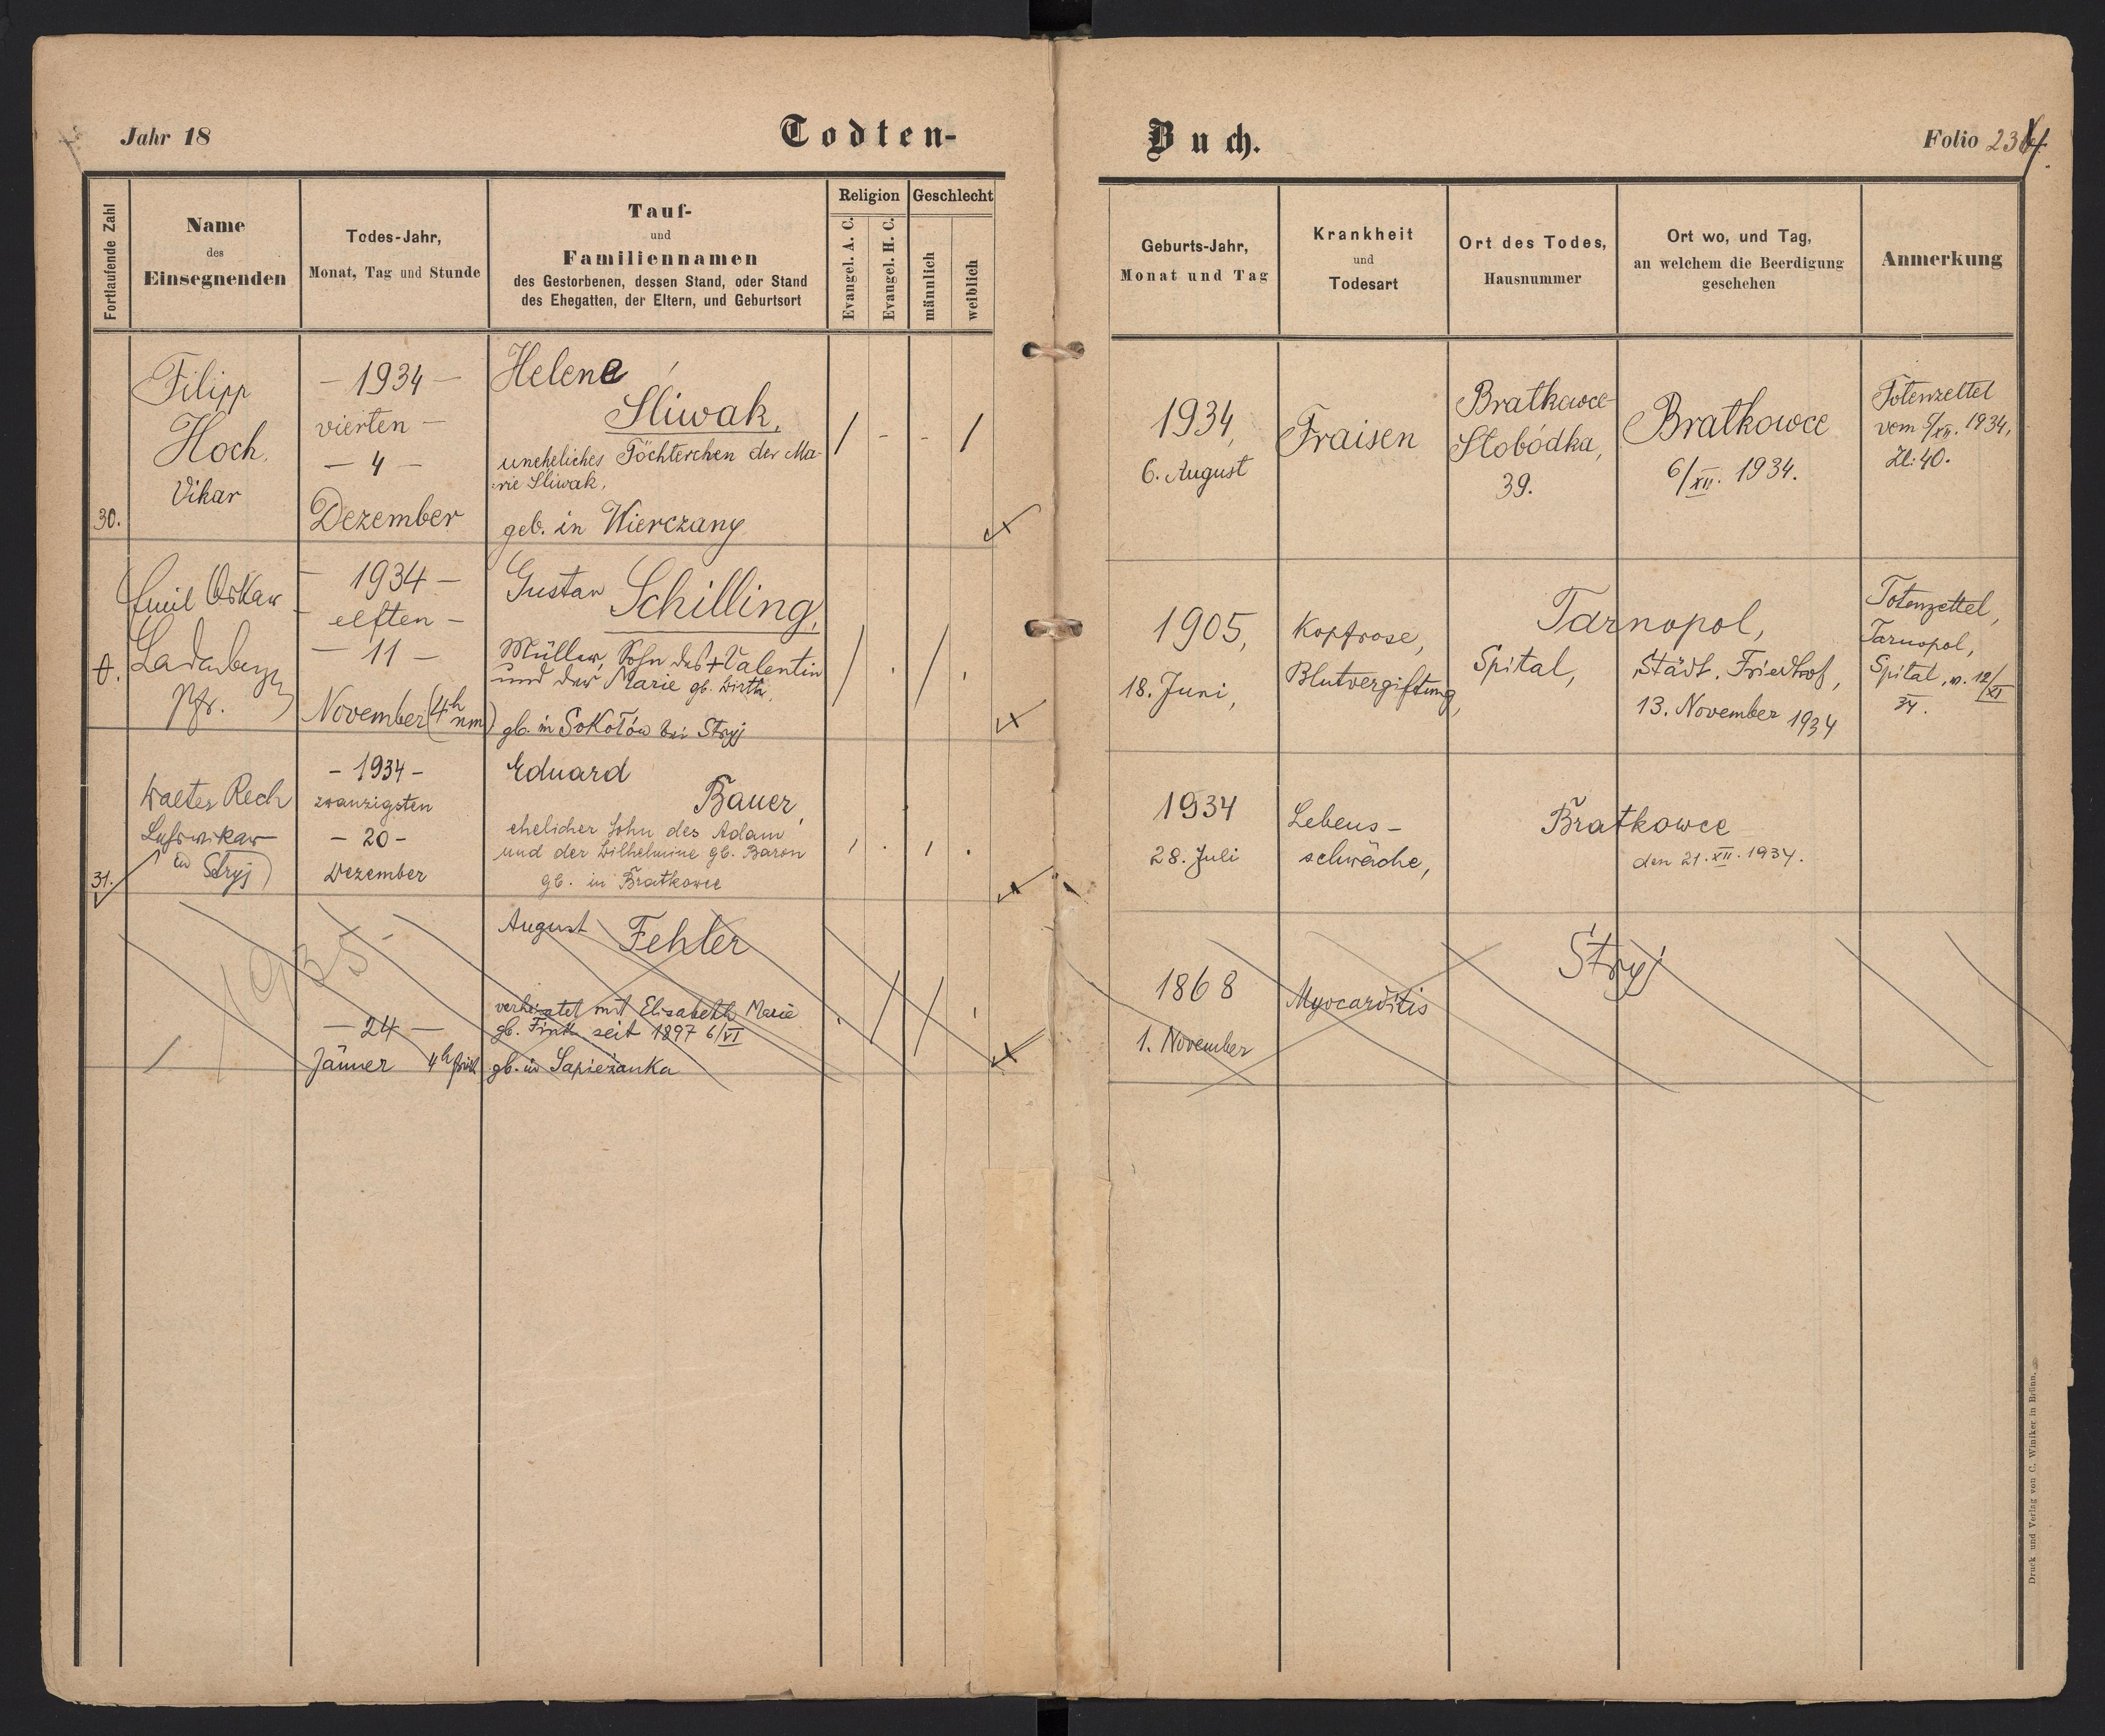 Jahr 18
Todten-
Buch.
Folio 234
Fortlaufende Zahl
Name
des
Einsegnenden
Todes-Jahr,
Monat, Tag und Stunde
Tauf-
und
Familiennamen
des Gestorbenen, dessen Stand, oder Stand
des Ehegatten, der Eltern, und Geburtsort
Religion
Evangel. A. C.
Evangel. H. C.
Geschlecht
männlich
weiblich
Geburts-Jahr,
Monat und Tag
Krankheit
und
Todesart
Ort des Todes,
Hausnummer
Ort wo, und Tag,
an welchem die Beerdigung
geschehen
Anmerkung
30.
Filipp
Hoch,
Vikar
- 1934 -
vierten -
- 4 -
Dezember
Helene
Sliwak,
uneheliches Töchterchen der Ma-
rie Sliwak,
geb. in Wierczany
/ - - /
1934,
6. August
Fraisen
Bratkowce-
Slobódka,
39.
Bratkowce
6/XII. 1934.
Totenzettel
vom 5/XII. 1934,
Zl: 40.
0.
Emil Oskar
Ladenberger
Pfr.
- 1934 -
- elften -
- 11 -
November (4h nm)
Gustav
Schilling,
Müller, Sohn des + Valentin
und der Marie gb. Wirth,
gb. in Sokołów bei Stryj
1905,
18. Juni,
Kopfrose,
Blutvergiftung,
Tarnopol,
Spital,
Städt. Friedhof,
13. November 1934
Totenzettel,
Tarnopol,
Spital, v. 12/XI
34.
31.
Walter Rech
in Stryj
- 1934 -
zwanzigsten
- 20 -
Dezember
Eduard
Bauer,
ehelicher Sohn des Adam
und der Wilhelmine gb. Baron
gb. in Bratkowce
1934
28. Juli
Lebens-
schwäche,
Bratkowce
den 21. XII. 1934.
1935
- 24 -
Jänner 4h früh
August
Fehler
verheiratet mit Elisabeth Marie
gb. Fink seit 1897 6/VI
gb. in Sapieżanka
1868
1. November
Myocarditis
Stryj
Druck und Verlag von C. Winiker in Brünn.